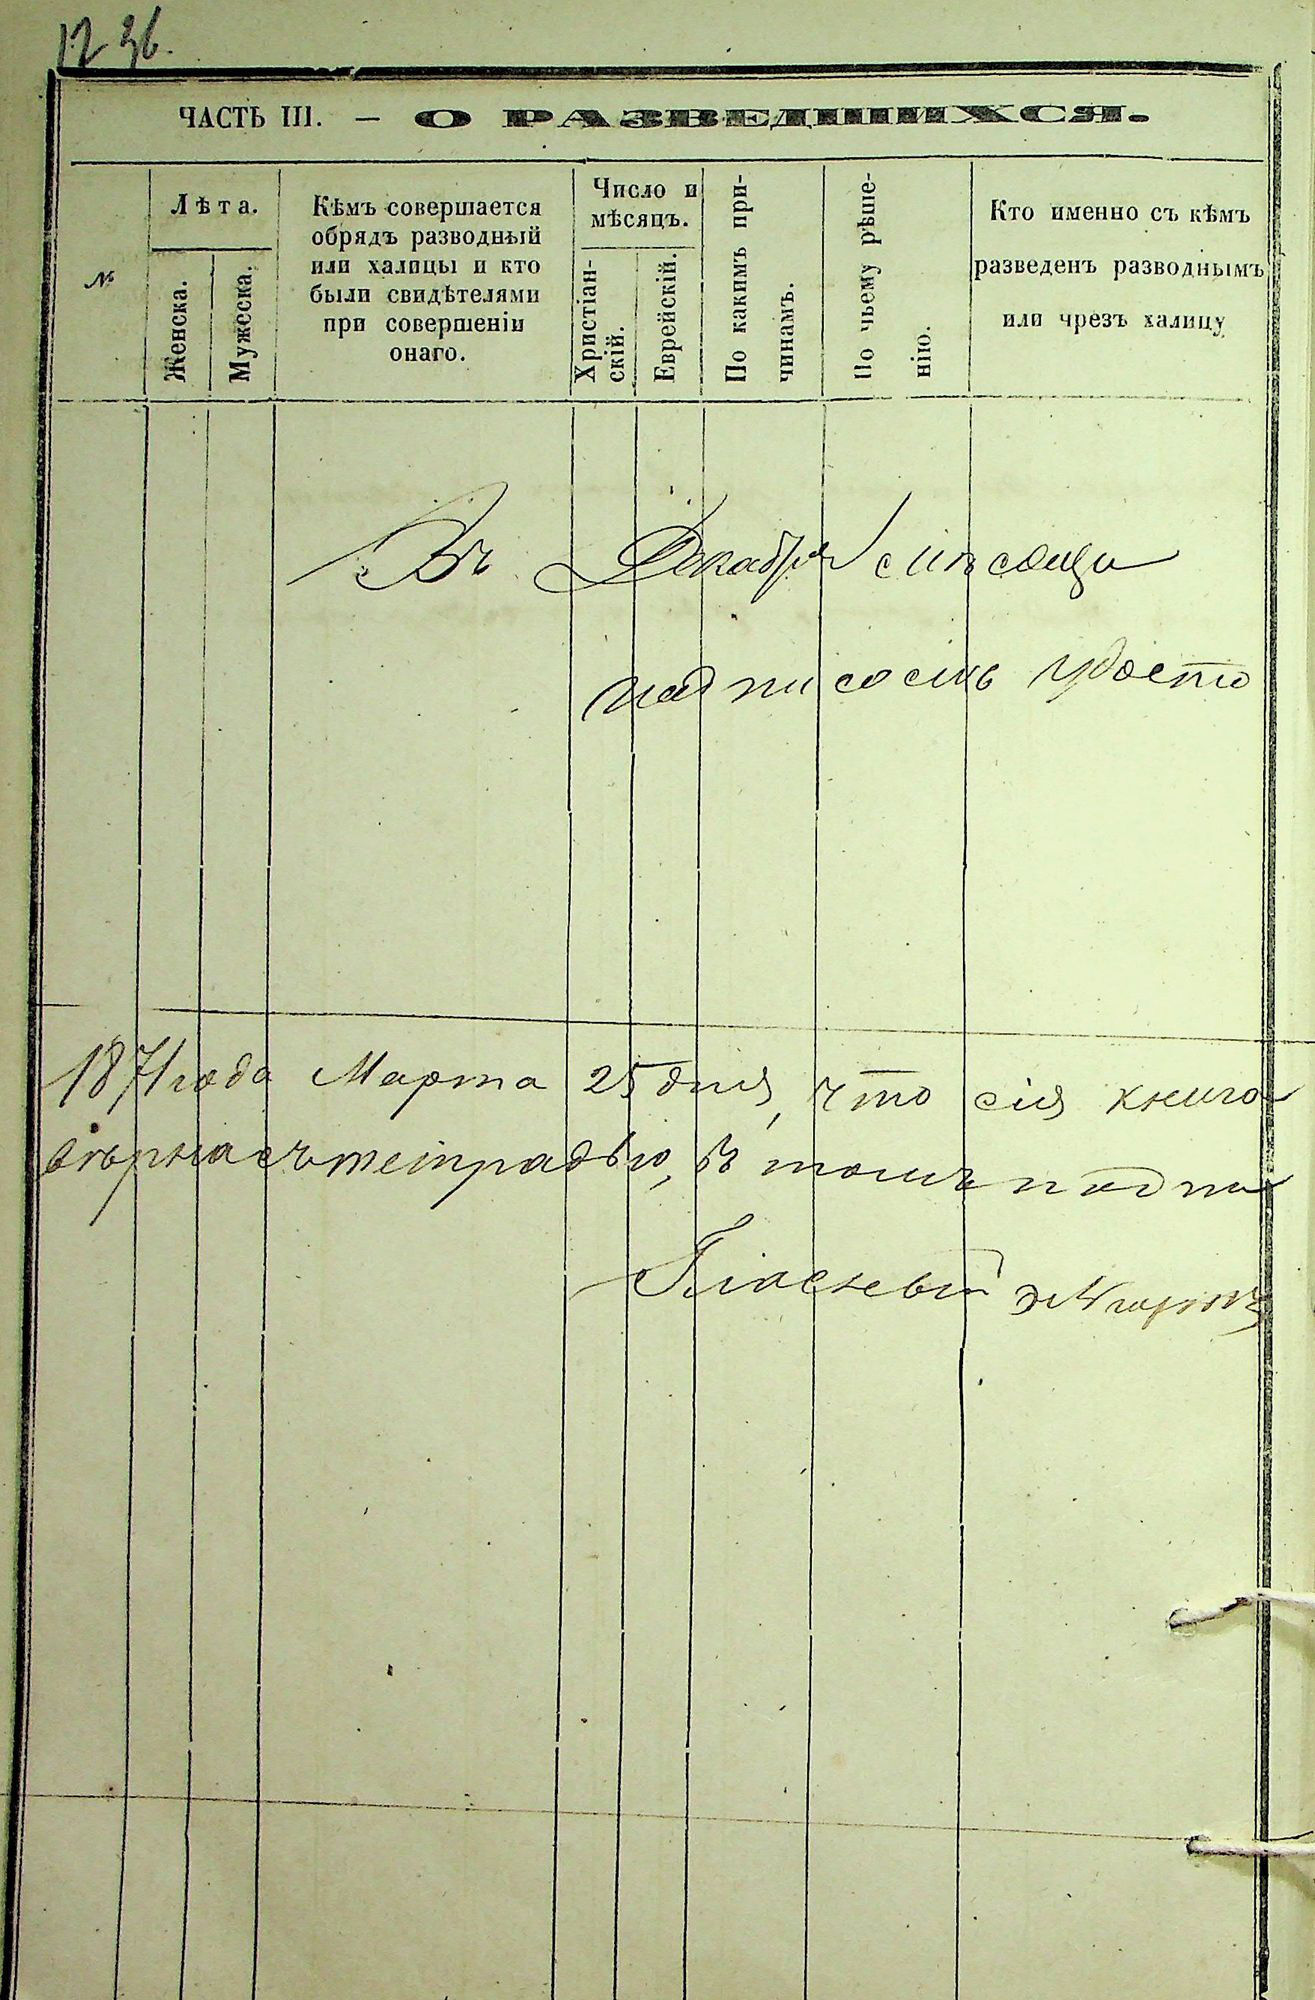 12 36.
ЧАСТЬ III. — О РАЗВЕДШИХСЯ.
№
Лѣта.
Женска.
Мужеска.
Кѣмъ совершается
обрядъ разводный
или халицы и кто
были свидѣтелями
при совершеніи
онаго.
Число и
мѣсяцъ.
Христіан-
скій.
Еврейскій.
По какимъ при-
чинамъ.
По чьему рѣше-
нію.
Кто именно съ кѣмъ
разведенъ разводнымъ
или чрезъ халицу
Въ Декабрѣ мѣсяци
1871 года Марта 25 дня, что сія книга
вѣрна съ тетрадью, въ томъ подпи